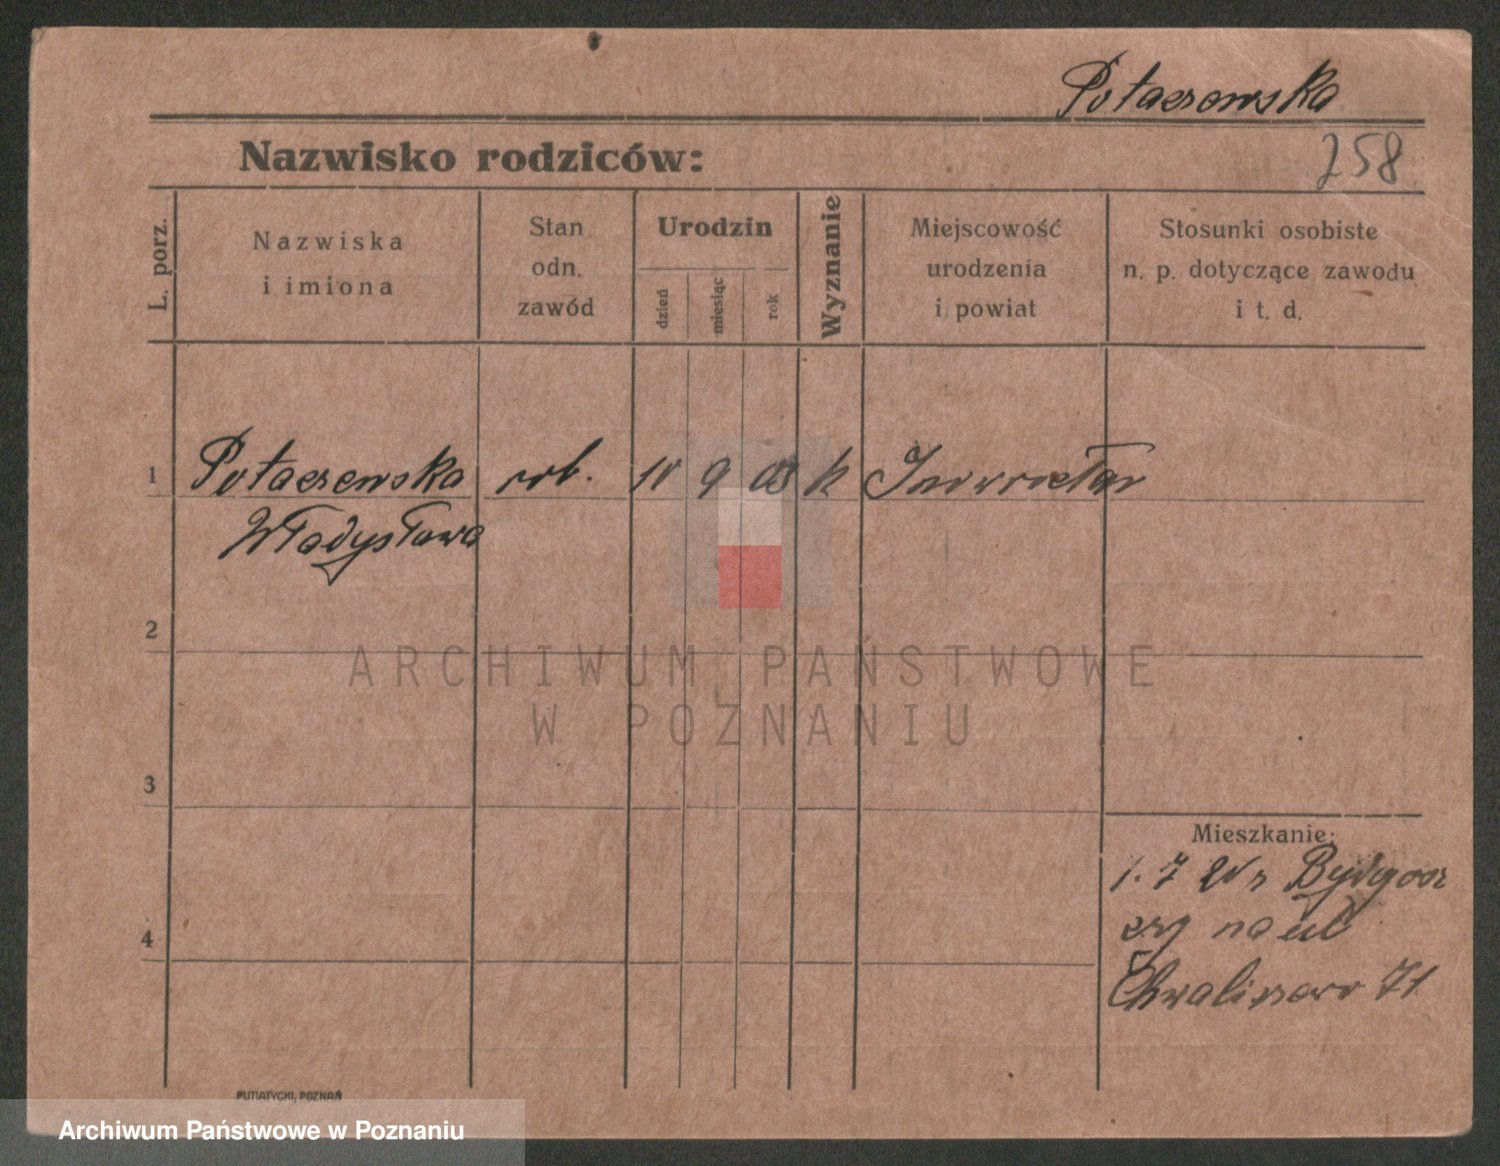 Potaczewska
Nazwisko rodziców:
258
L. porz.
Nazwiska
i imiona
Stan
odn.
zawód
Urodzin
dzień
miesiąc
rok
Wyznanie
Miejscowość
urodzenia
i powiat
Stosunki osobiste
n. p. dotyczące zawodu
i t. d.
1 Potaczewska rob. 10 9 03 k Inowrocław
Władysława
2
3
4
Mieszkanie:
1. 7 z Bydgosz
czy na ul
71
PUTIATYCKI, POZNAŃ
ARCHIWUM PAŃSTWOWE
W POZNANIU
Archiwum Państwowe w Poznaniu